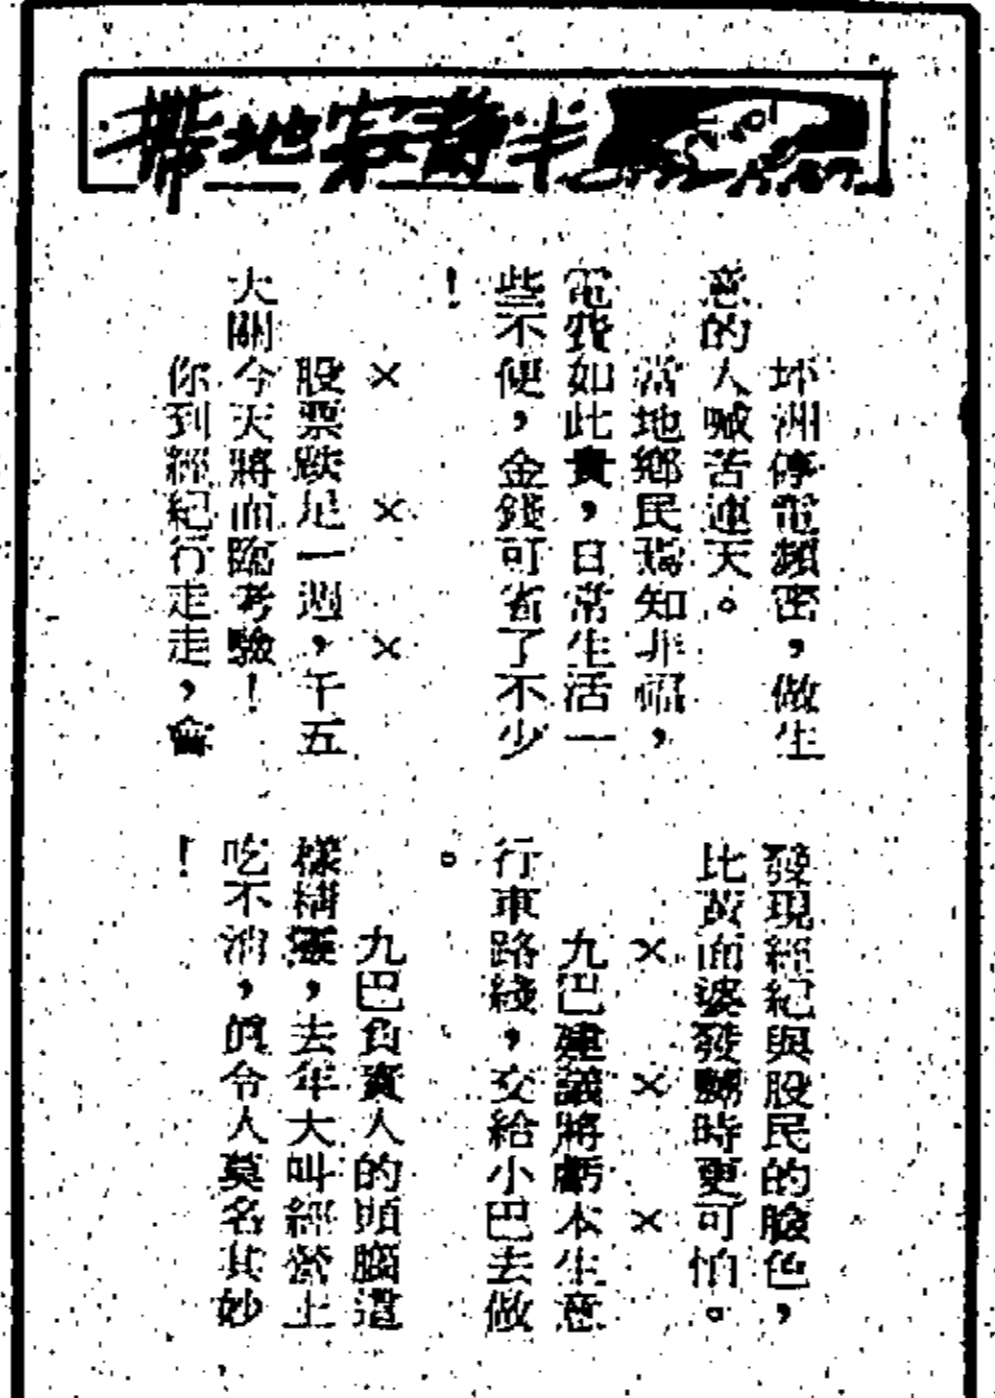 地帶
坪洲停電頻密，做生
意的人喊苦連天。
當地鄉民焉知非福，
電費如此貴，日常生活一
些不便，金錢可省了不少
！
× × ×
股票跌足一週，千五
大關今天將面臨考驗！
你到經紀行走走，會
發現經紀與股民的臉色，
比黃面婆發嬲時更可怕。
× × ×
九巴建議將虧本生意
行車路綫，交給小巴去做
。
九巴負責人的頭腦這
樣精靈，去年大叫經營上
吃不消，眞令人莫名其妙
！